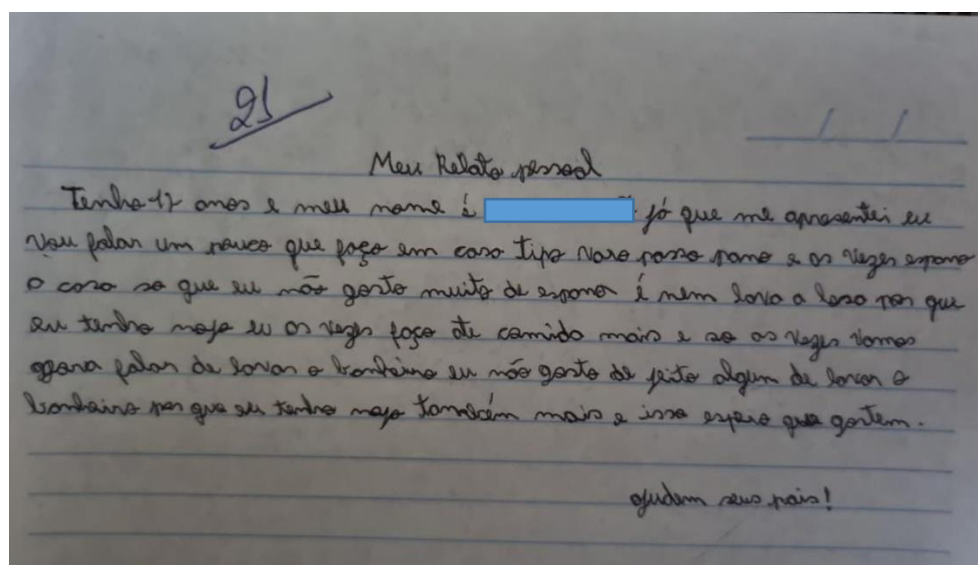 21
/ /
Meu Relato pessoal
Tenho 17 anos e meu nome é já que me apresentei eu
vou falar um pouco que faço em casa tipo varo passo pano e as vezes espano
a casa so que eu não gosto muito de espana é nem lava a losa por que
eu tenho nojo eu as vezes faço ate comida mais e so as vezes vamos
agora falar de lavar o banheiro eu não gosto de jeito algum de lavar o
banheiro por que eu tenho nojo também mais e isso espero que gostem.
ajudem seus pais!